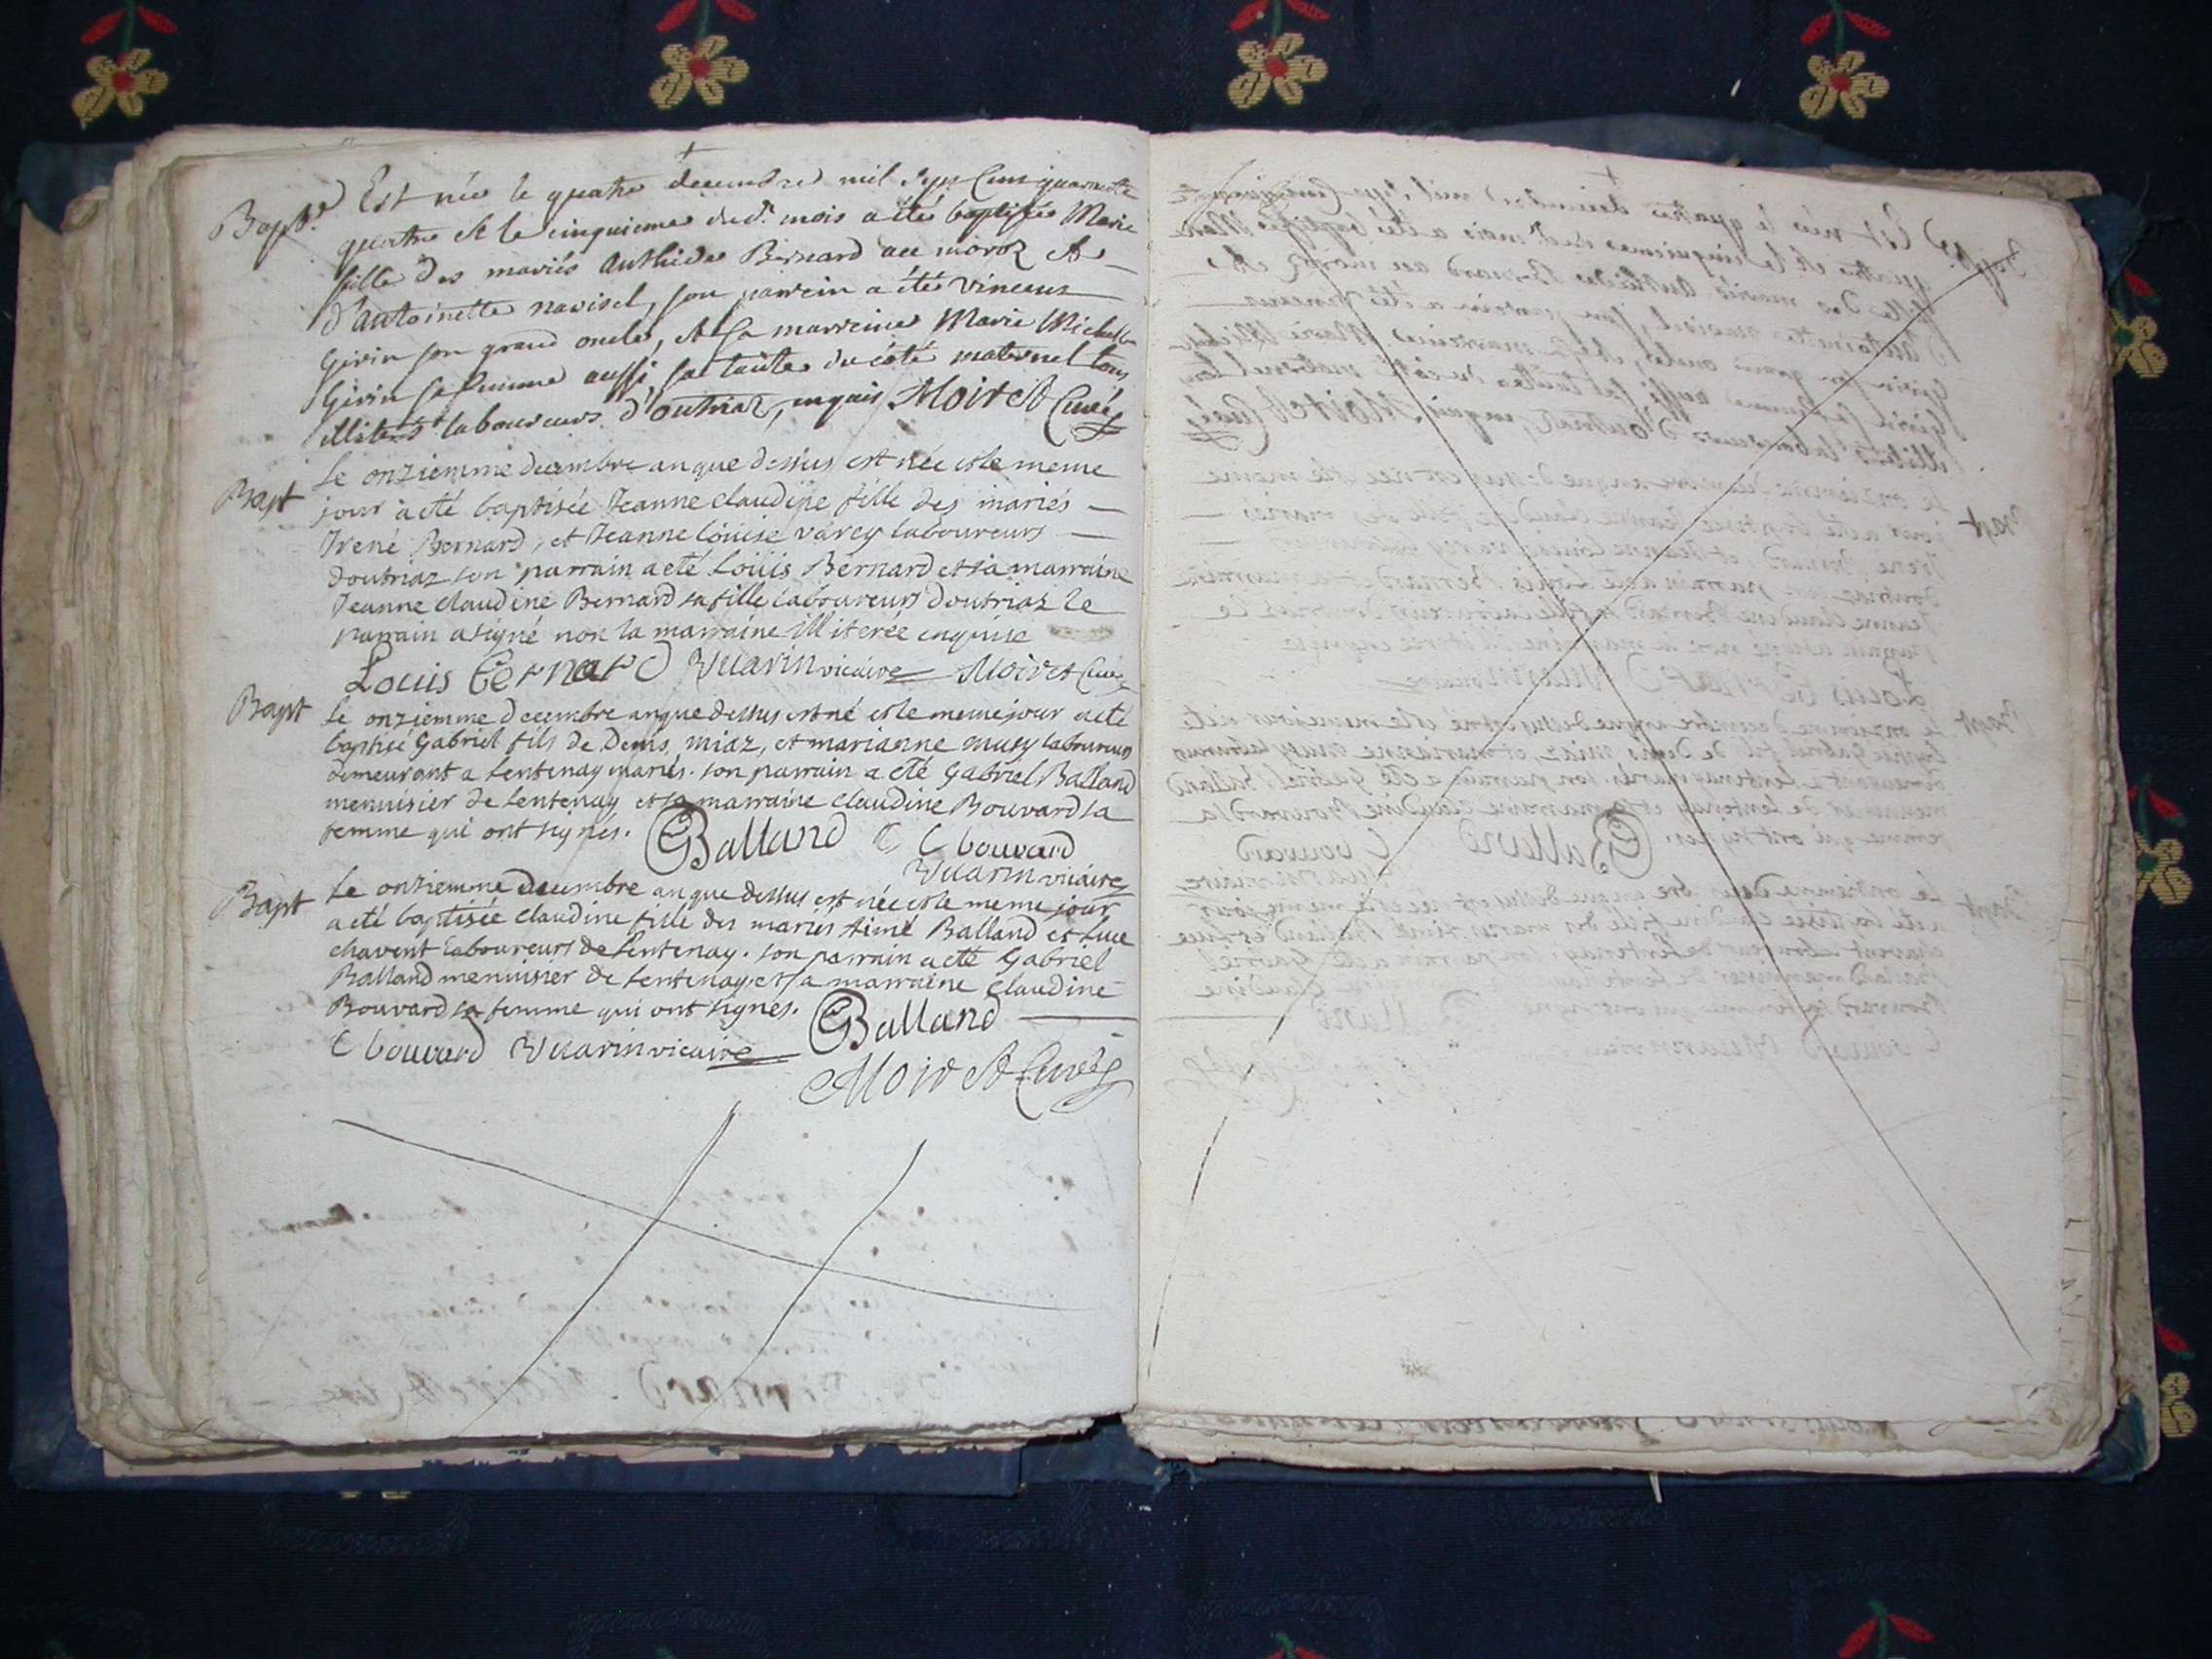 Bapt.e Est née le quatre decembre mil sept Cens quarante
quatre et le cinquieme dud.t mois a été baptisée Marie
fille des mariés Anthide Bernard au moroz et
d'antoinette navisel, son parrein a été vincens
Girin son grand oncle, et sa marreine Marie Michel
Girin sa femme aussi, sa tante du côté maternel tous
illiterés laboureurs d'outriaz, enquis Moiret Curé
Bapt Le onziemme decembre an que dessus est née et le meme
jour a eté baptisée Jeanne claudine fille des mariés
Irené Bernard, et Jeanne loüise varey laboureurs
doutriaz son parrain a eté Loüis Bernard et sa marraine
Jeanne claudine Bernard sa fille laboureurs doutriaz le
parrain a signé non la marraine illiterée enquise
Louis bernard Vuarin vicaire Moiret Curé
Bapt Le onziemme decembre an que dessus est né et le meme jour a eté
baptisé Gabriel fils de Denis miaz, et marianne musy laboureurs
demeurant a Lentenay mariés. son parrain a eté Gabriel Balland
menuisier de Lentenay et sa marraine claudine Bouvard sa
femme qui ont signés. GBalland C bouvard
Vuarin vicaire
Bapt Le onziemme decembre an que dessus est née et le meme jour
a eté baptisée claudine fille des mariés Aimé Balland et Luce
chavent laboureurs de Lentenay. son parrain a eté Gabriel
Balland menuisier de Lentenay et sa marraine claudine
Bouvard sa femme qui ont signés. GBalland
C bouvard Vuarin vicaire
Moiret Curé